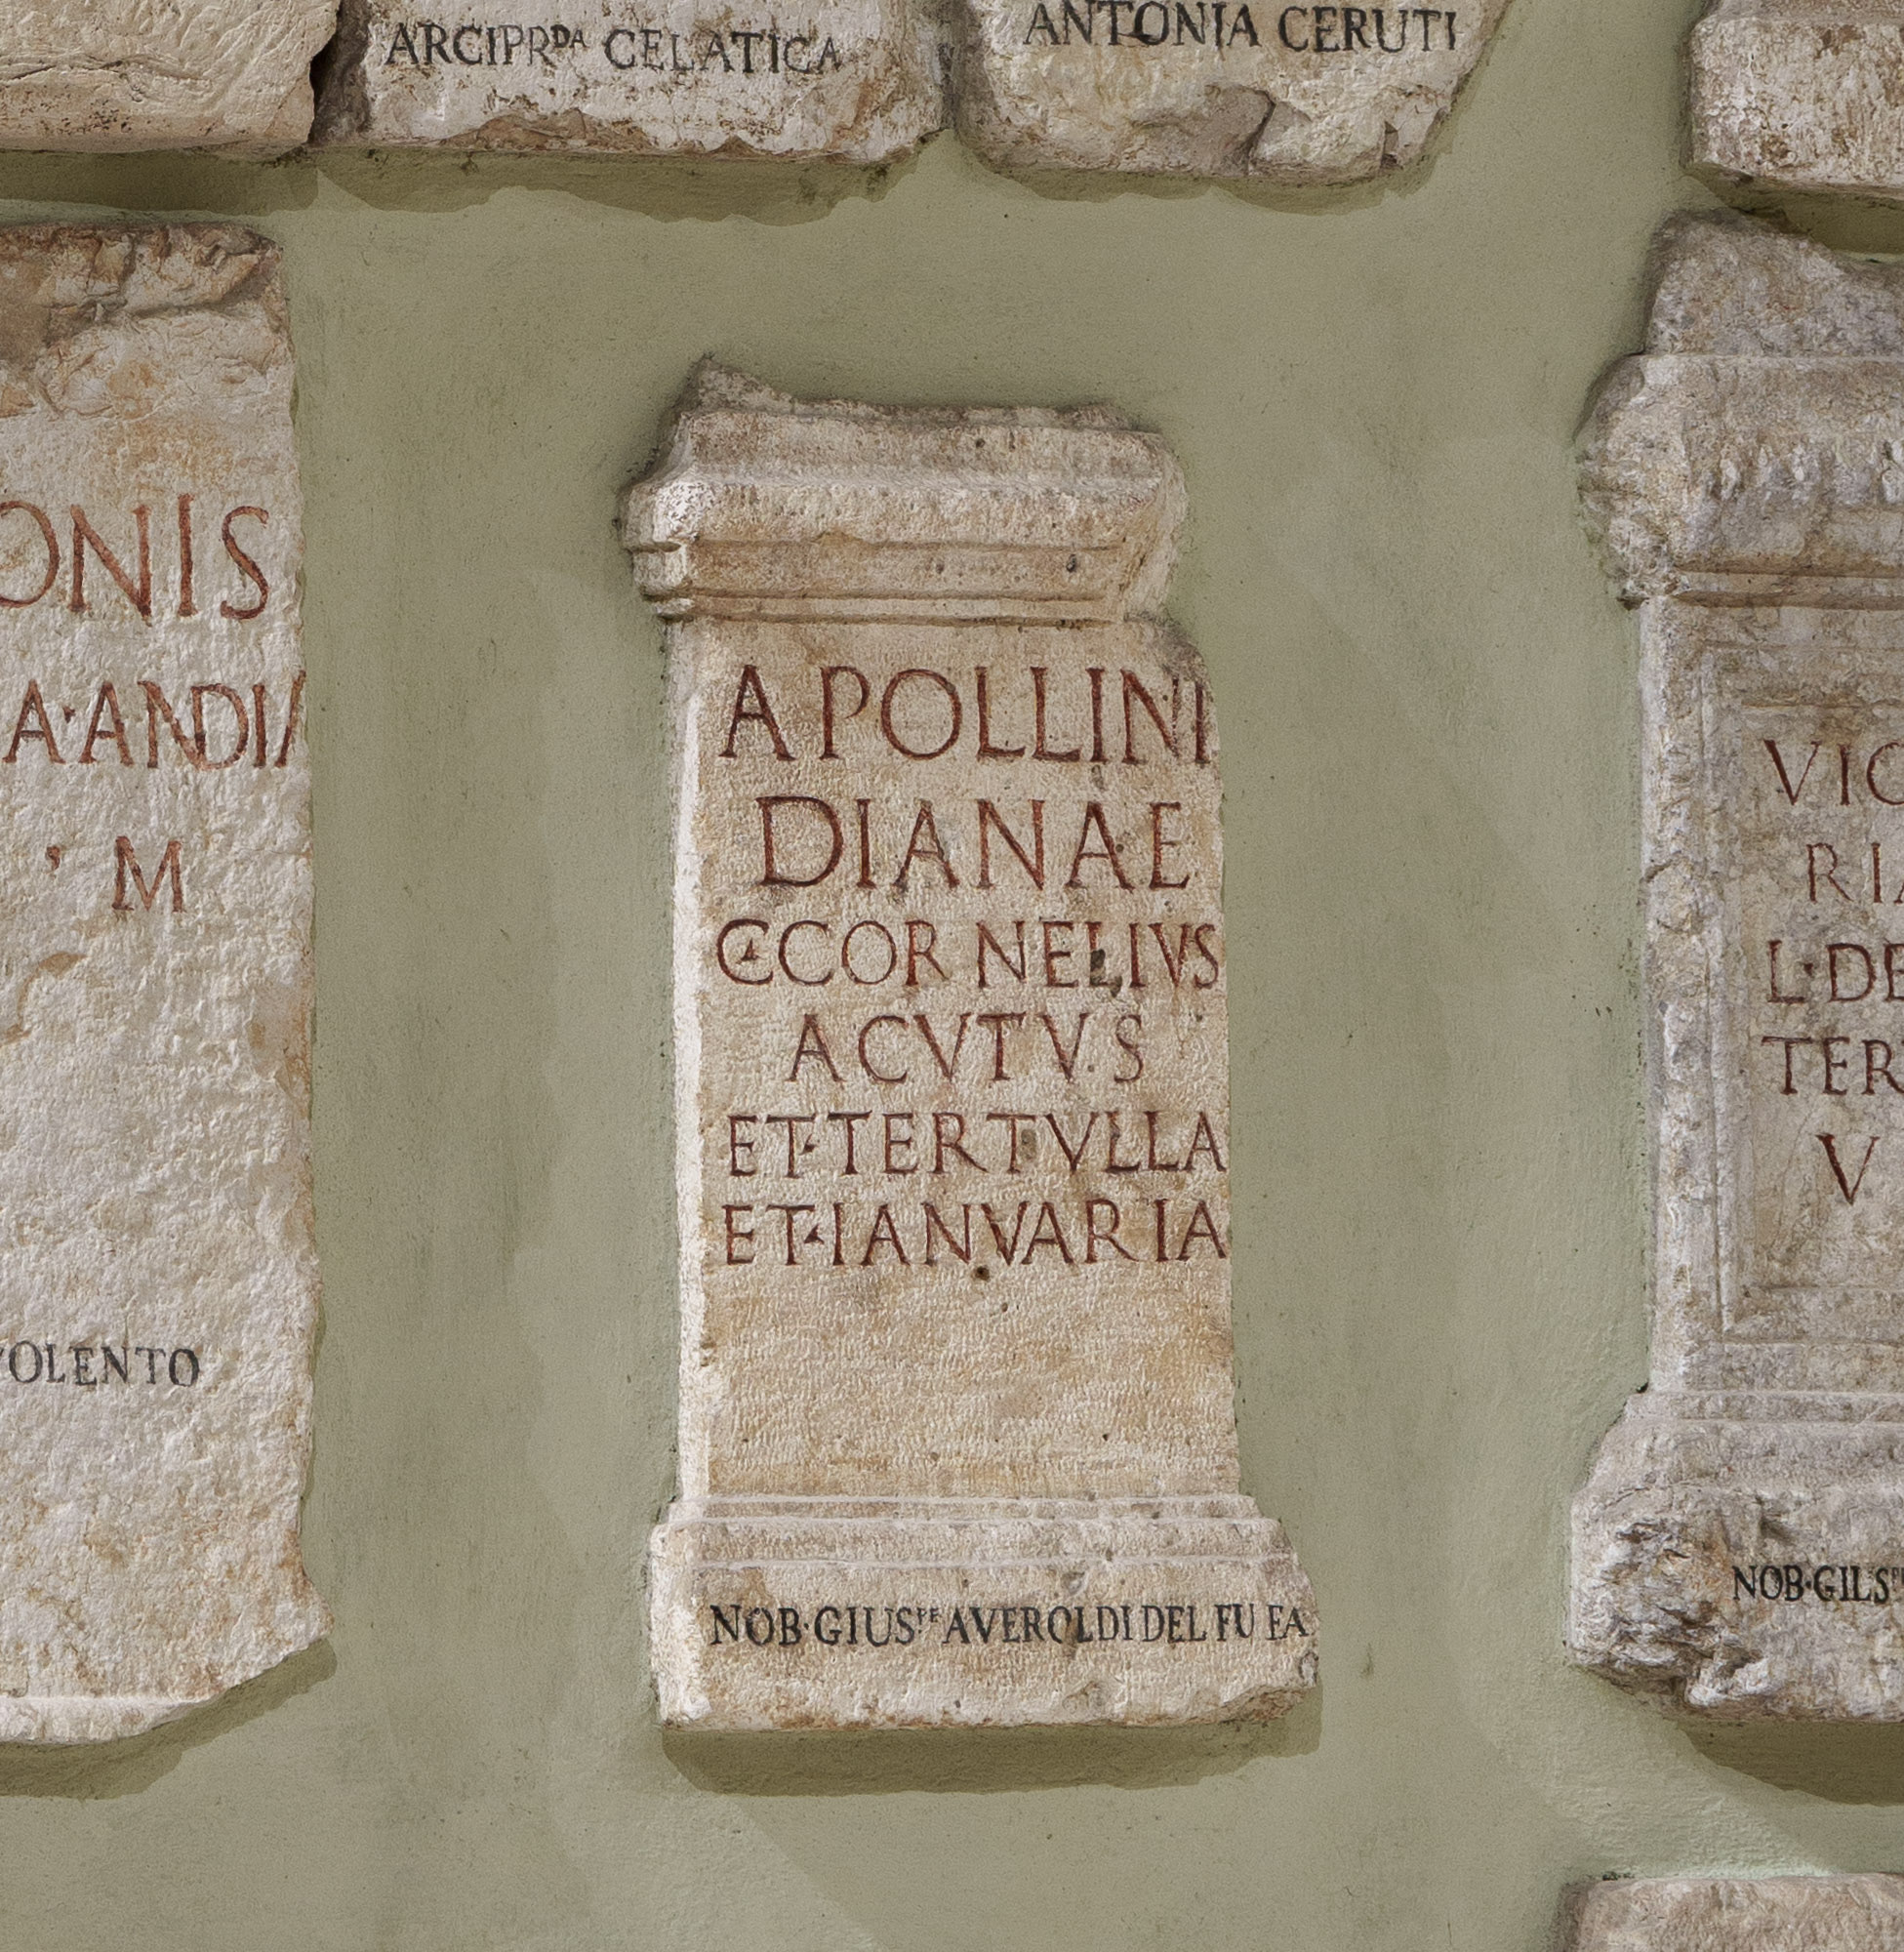 ARCIPRDA CELATICA
ANTONIA CERUTI
ONIS
A·ANDIA
M
VOLENTO
APOLLINI
DIANAE
C·CORNELIVS
ACVTVS
ET·TERTVLLA
ET·IANVARIA
NOB·GIUSPE AVEROLDI DEL FU FA
VIC
RIA
L·DE
TER
V
NOB·GILSPE